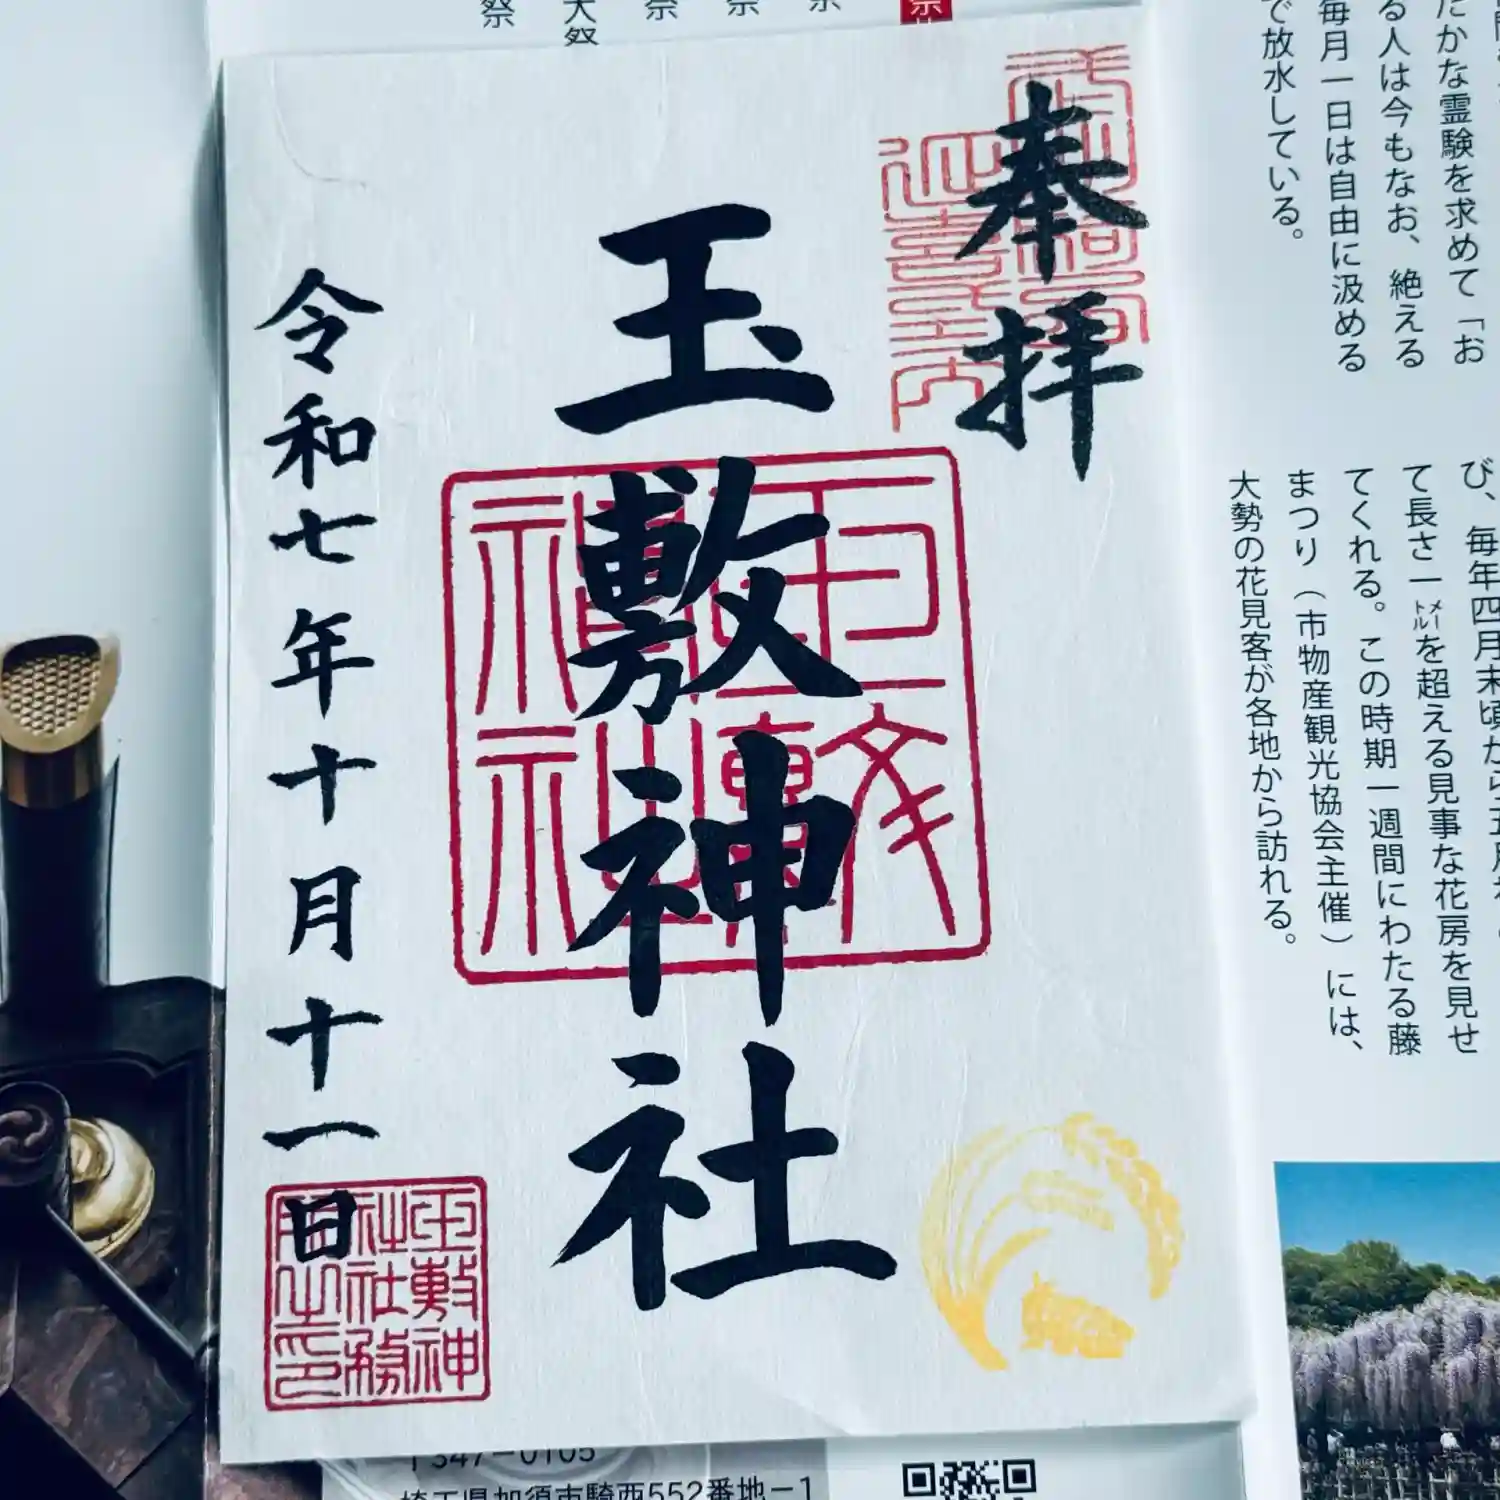 奉拝
玉敷神社
令和七年十月十一日
玉敷神社
玉敷神社社務所之印
祭
大祭
祭
祭
祭
たかな霊験を求めて「お
る人は今もなお、絶える
毎月一日は自由に汲める
で放水している。
び、毎年四月末頃から五月
て長さ一メートルを超える見事な花房を見せ
てくれる。この時期一週間にわたる藤
まつり（市物産観光協会主催）には、
大勢の花見客が各地から訪れる。
〒347－0105
埼玉県加須市騎西552番地－1